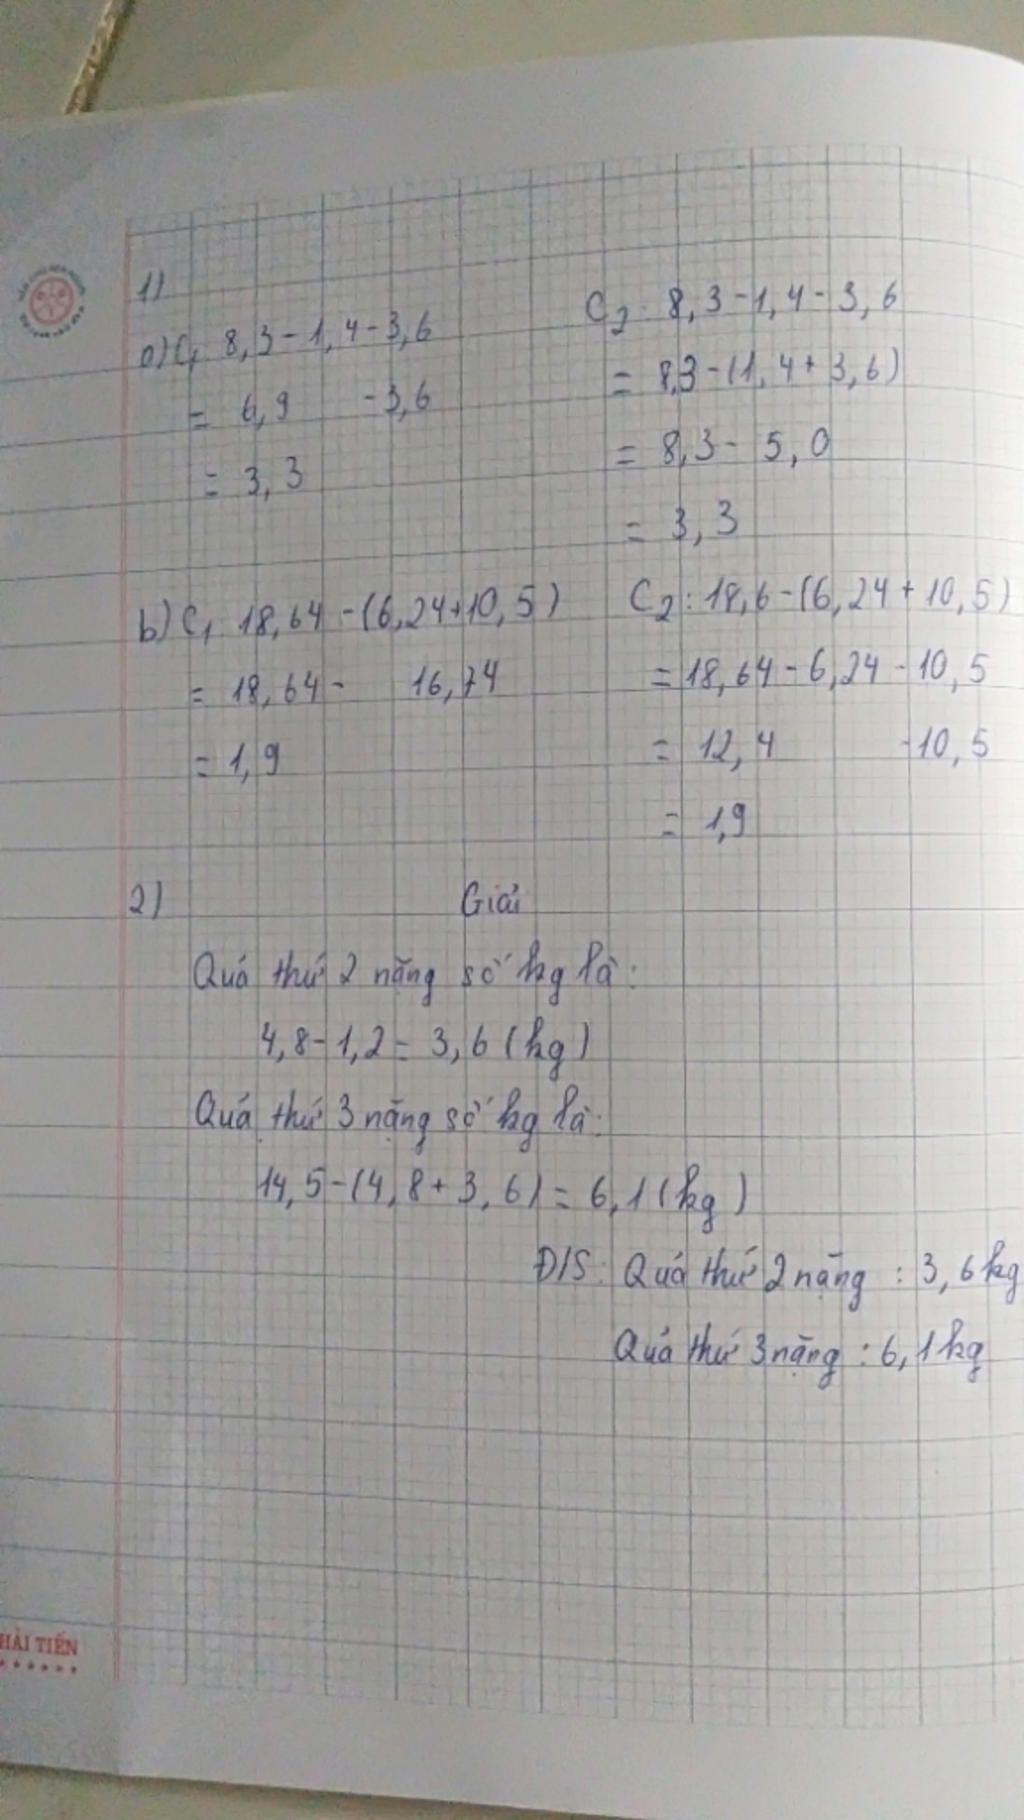 1)
a) C1 8,3 - 1,4 - 3,6
= 6,9 - 3,6
= 3,3
C2: 8,3 - 1,4 - 3,6
= 8,3 - (1,4 + 3,6)
= 8,3 - 5,0
= 3,3
b) C1 18,64 - (6,24 + 10,5)
= 18,64 - 16,74
= 1,9
C2: 18,6 - (6,24 + 10,5)
= 18,64 - 6,24 - 10,5
= 12,4 - 10,5
= 1,9
2) Giải
Quả thứ 2 nặng số kg là:
4,8 - 1,2 = 3,6 (kg)
Quả thứ 3 nặng số kg là:
14,5 - (4,8 + 3,6) = 6,1 (kg)
Đ/S: Quả thứ 2 nặng : 3,6 kg
Quả thứ 3 nặng : 6,1 kg
HẢI TIẾN